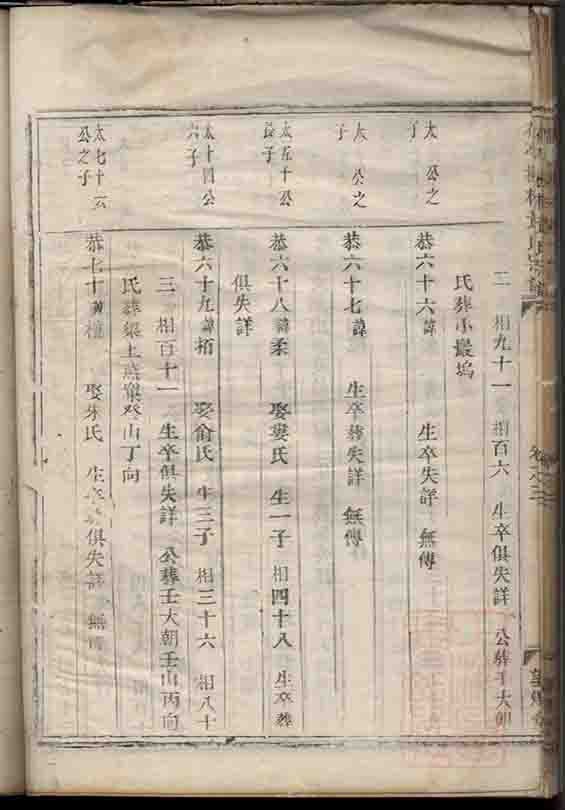 二 相九十一 相百六 生卒俱失詳 公葬壬大朝
氏葬小叢塢
太 公之
子
恭六十六諱 生卒失詳 無傳
太 公之
子
恭六十七諱 生卒葬失詳 無傳
太 十公
長子
恭六十八諱柔 娶婁氏 生一子 相四十八 生卒葬
俱失詳
太十四公
六子
恭六十九諱栢 娶俞氏 生三子 相三十六 相八十
三 相百十一 生卒俱失詳 公葬壬大朝壬山丙向
氏葬 上燕窠癸山丁向
太七十 公之子
恭七十諱 娶 氏 生卒 俱失詳 無傳